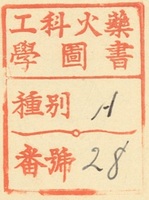 工科火藥
學圖書
種別 A
番號 28